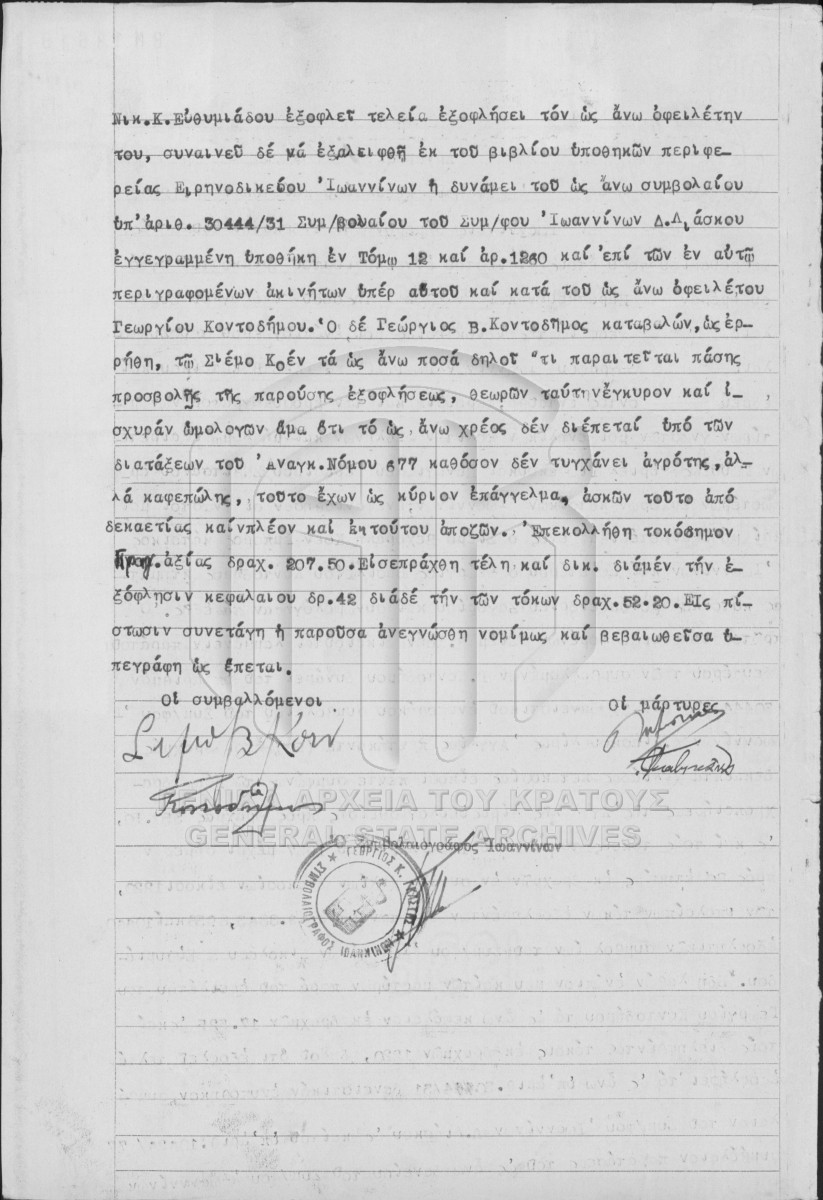 Νικ.Κ.Εὐθυμιάδου ἐξοφλεῖ τελεία ἐξοφλήσει τόν ὡς ἄνω ὀφειλέτην
του, συναινεῖ δέ νά ἐξαλειφθῇ ἐκ τοῦ βιβλίου ὑποθηκῶν περιφε-
ρείας Εἰρηνοδικείου Ἰωαννίνων ἡ δυνάμει τοῦ ὡς ἄνω συμβολαίου
ὑπ'ἀριθ. 30444/31 Συμ/βολαίου τοῦ Συμ/φου Ἰωαννίνων Δ.Λιάσκου
ἐγγεγραμμένη ὑποθήκη ἐν Τόμῳ 12 καί ἀρ.1260 καί ἐπί τῶν ἐν αὐτῷ
περιγραφομένων ἀκινήτων ὑπέρ αὐτοῦ καί κατά τοῦ ὡς ἄνω ὀφειλέτου
Γεωργίου Κοντοδήμου. Ὁ δέ Γεώργιος Β.Κοντοδῆμος καταβαλών,ὡς ἐρ-
ρήθη, τῷ Σιέμο Κοέν τά ὡς ἄνω ποσά δηλοῖ ὅτι παραιτεῖται πάσης
προσβολῆς τῆς παρούσης ἐξοφλήσεως, θεωρῶν ταύτην ἔγκυρον καί ἰ-
σχυράν ὡμολογῶν ἅμα ὅτι τό ὡς ἄνω χρέος δέν διέπεται ὑπό τῶν
διατάξεων τοῦ Ἀναγκ.Νόμου 677 καθόσον δέν τυγχάνει ἀγρότης,ἀλ-
λά καφεπώλης, τοῦτο ἔχων ὡς κύριον ἐπάγγελμα, ἀσκῶν τοῦτο ἀπό
δεκαετίας καί πλέον καί ἐκ τούτου ἀποζῶν. Ἐπεκολλήθη τοκόσημον
πραγ.ἀξίας δραχ. 207.50.Εἰσεπράχθη τέλη καί δικ. διά μέν τήν ἐ-
ξόφλησιν κεφαλαίου δρ.42 διά δέ τήν τῶν τόκων δραχ.52.20.Εἰς πί-
στωσιν συνετάγη ἡ παροῦσα ἀνεγνώσθη νομίμως καί βεβαιωθεῖσα ὑ-
πεγράφη ὡς ἕπεται.
Οἱ συμβαλλόμενοι Οἱ μάρτυρες
ΓΕΝΙΚΑ ΑΡΧΕΙΑ ΤΟΥ ΚΡΑΤΟΥΣ
GENERAL STATE ARCHIVES
Ὁ Συμβολαιογράφος Ἰωαννίνων
ΓΕΩΡΓΙΟΣ Κ.
ΣΥΜΒΟΛΑΙΟΓΡΑΦΟΣ ΙΩΑΝΝΙΝΩΝ